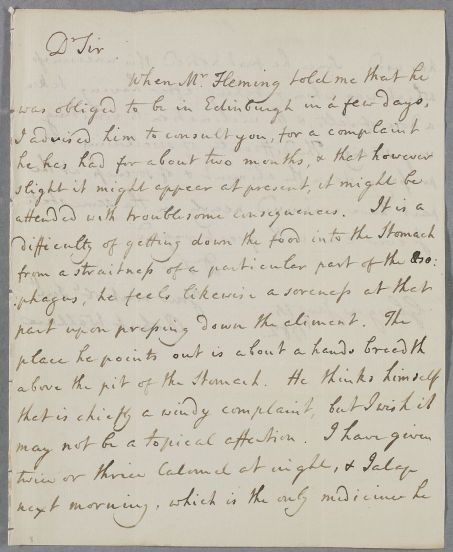 Dr Sir
When Mr. Fleming told me that he
was obliged to be in Edinburgh in a few days,
I advised him to consult you, for a complaint
he has had for about two months, & that however
slight it might appear at present, it might be
attended with troublesome consequences. It is a
difficulty of getting down the food into the Stomach
from a straitness of a particular part of the Œso:
:phagus, he feels likewise a soreness at that
part upon pressing down the aliment. The
place he points out is about a hands breadth
above the pit of the Stomach. He thinks himself
that is chiefly a windy complaint, but I wish it
may not be a topical affection. I have given
twice or thrice Calomel at night, & Jalap
next morning, which is the only medicines he